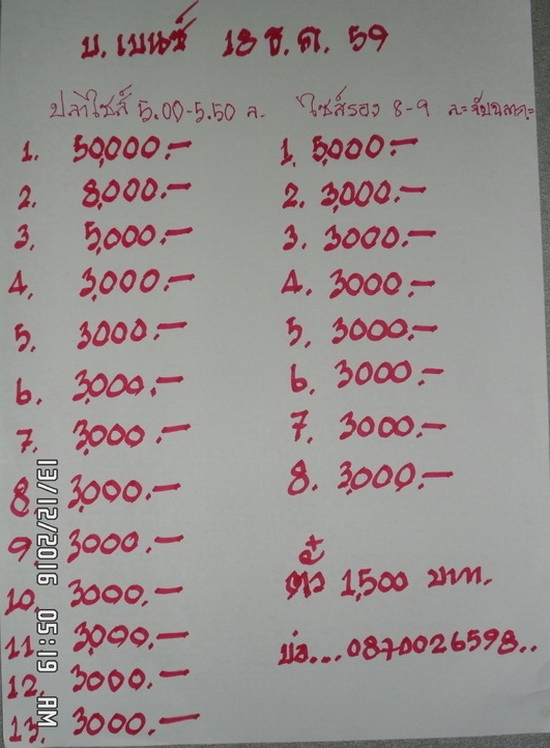 บ. เบนซ์ 18 ธ.ค. 59
ปลาไซส์ 5.00-5.50 ล.
1. 50,000.-
2. 8,000.-
3. 5,000.-
4. 3,000.-
5. 3000.-
6. 3,000.-
7. 3,000.-
8. 3,000.-
9. 3000.-
10. 3000.-
11. 3,000.-
12. 3000.-
13. 3000.-
ไซส์รอง 8-9 ละ=จับฉลาก=
1. 5,000.-
2. 3,000.-
3. 3000.-
4. 3000.-
5. 3000.-
6. 3000.-
7. 3000.-
8. 3,000.-
ตั๋ว 1,500 บาท.
บ่อ...0870026598..
13/12/2016 05:19 AM